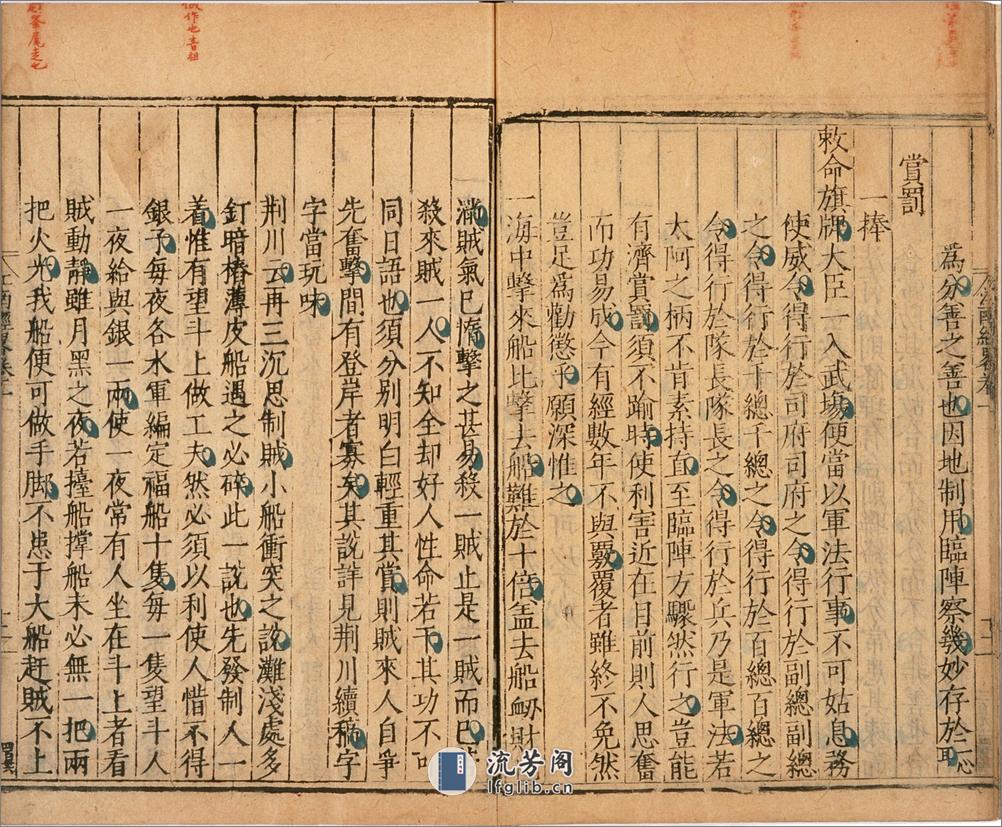 為分善之善也因地制用臨陣察幾妙存於一心
賞罰
一捧
敕命旗牌大臣一入武場便當以軍法行事不可姑息務
使威令得行於司府司府之令得行於副總副總
之令得行於千總千總之令得行於百總百總之
令得行於隊長隊長之令得行於兵乃是軍法若
太阿之柄不肯素持直至臨陣方驟然行之豈能
有濟賞罰須不踰時使利害近在目前則人思奮
而功易成今有經數年不與覈覆者雖終不免然
豈足為勸懲乎願深惟之
一海中擊來船比擊去船難於十倍盖去船刼財
滿賊氣已惰擊之甚易殺一賊止是一賊而已
殺來賊一人不知全却好人性命若干其功不可
同日語也須分别明白輕重其賞則賊來人自爭
先奮擊間有登岸者寡矣其說詳見荆川續稿字
字當玩味
荆川云再三沉思制賊小船衝突之說灘淺處多
釘暗樁薄皮船遇之必碎此一說也先發制人一
着惟有望斗上做工夫然必須以利使人惜不得
銀子每夜各水軍編定福船十隻每一隻望斗人
一夜給與銀一兩使一夜常有人坐在斗上者看
賊動靜雖月黑之夜若擡船撑船未必無一把兩
把火光我船便可做手脚不患于大船赶賊不上
作也音祖
尾走也
流芳阁
lfglib.cn